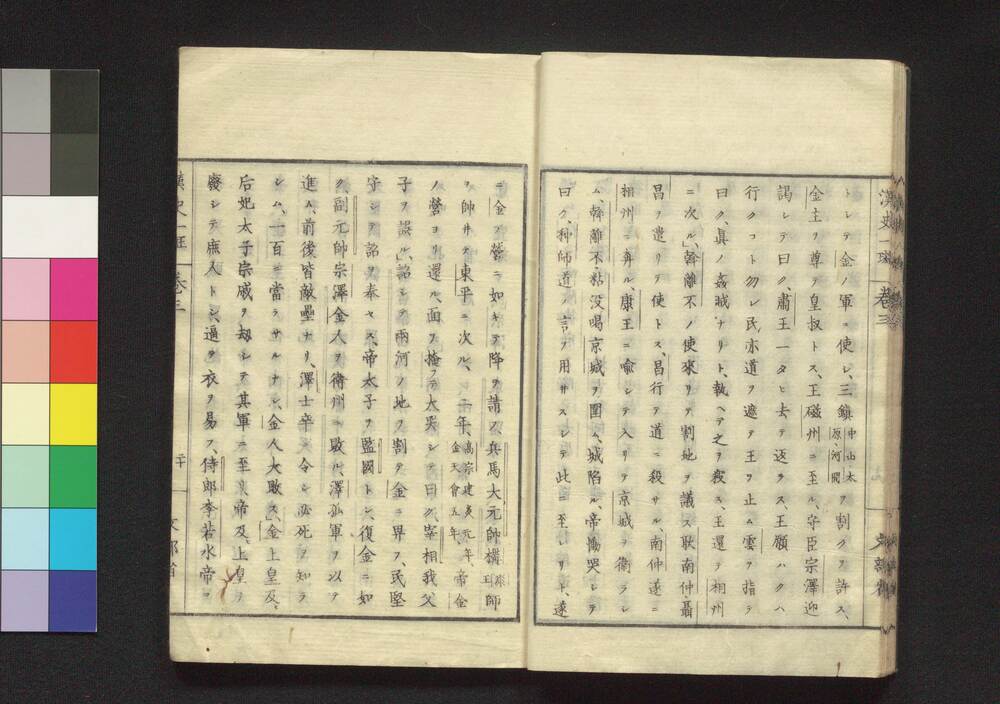 トシテ金ノ軍ニ使シ、三鎮中山太原、河間ヲ割クヲ許ス、
金主ヲ尊テ皇叔トス、王磁州ニ至ル、守臣宗澤迎
謁シテ曰ク、肅王一タヒ去テ返ラス、王願ハクハ
行クコト勿レ、民亦道ヲ遮テ王ヲ止ム、雲ヲ指テ
曰ク、真ノ姦賊ナリト、執ヘテ之ヲ殺ス、王還テ相州
ニ次ル、斡離不ノ使來リテ割地ヲ議ス、耿南仲、聶
昌ヲ遣リテ使トス、昌行テ道ニ殺サル、南仲遂ニ
相州ニ奔ル、康王ニ喩シテ入リテ京城ヲ衛ラシ
ム、斡離不、粘没喝京城ヲ圍ム、城陷ル、帝慟哭シテ
曰ク、种師道ノ言ヲ用サスシテ此ニ至レリト、遂
漢史一班 卷三
ニ金ノ營ニ如キテ降ヲ請フ、兵馬大元帥構來到師
ヲ帥ヰテ東平ニ次ル、二年、高宗建炎元年、金天會五年、帝金
ノ營ヨリ還ル、面ヲ掩フテ大哭シテ曰ク、宰相我父
子ヲ誤ル、詔シテ兩河ノ地ヲ割テ金ニ畀フ、民堅
守シテ詔ヲ奉セス、帝太子ヲ監國トシ、復金ニ如
ク、副元帥宗澤金人ヲ衛州ニ敗ル、澤孤軍ヲ以テ
進ム、前後皆敵壘ナリ、澤士卒ニ令シ必死ヲ知ラ
シム、一百ニ當ラサルナシ、金人大敗ス、金上皇及
后妃太子宗戚ヲ劫シテ其軍ニ至ル、帝及上皇ヲ
廢シテ庶人トシ、逼テ衣ヲ易フ、侍郎李若水帝ヲ
漢史一班 卷三 二十 文部省